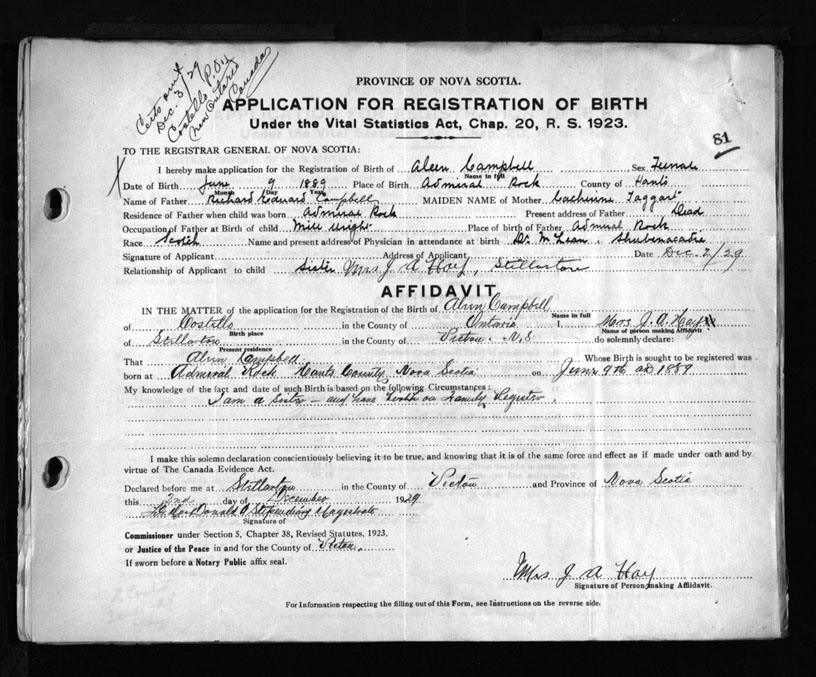 Certs out
Dec. 3/29
Costello P.O.
New Ontario
Canada
PROVINCE OF NOVA SCOTIA.
APPLICATION FOR REGISTRATION OF BIRTH
Under the Vital Statistics Act, Chap. 20, R. S. 1923.
81
TO THE REGISTRAR GENERAL OF NOVA SCOTIA:
I hereby make application for the Registration of Birth of Campbell Sex Female
Name in full
Date of Birth June 9 1889 Place of Birth Admiral Rock County of Hants
Month Day Year
Name of Father Richard Edward Campbell MAIDEN NAME of Mother Catherine Taggart
Residence of Father when child was born Admiral Rock Present address of Father Dead
Occupation of Father at Birth of child Mill Wright Place of birth of Father Admiral Rock
Race Scotch Name and present address of Physician in attendance at birth Dr. McLean, Shubenacadie
Signature of Applicant Address of Applicant Date Dec. 2/29
Relationship of Applicant to child Sister Mrs J A Hay, Stellarton
AFFIDAVIT
IN THE MATTER of the application for the Registration of the Birth of Campbell
Name in full
of Costello in the County of Ontario I, Mrs J. A. Hay
Birth place Name of person making Affidavit
of Stellarton in the County of Pictou N.S do solemnly declare:
Present residence
That Campbell Whose Birth is sought to be registered was
born at Admiral Rock Hants County Nova Scotia on June 9th AD 1889
My knowledge of the fact and date of such Birth is based on the following Circumstances:
I am a sister – and have birth on Family Register.
I make this solemn declaration conscientiously believing it to be true, and knowing that it is of the same force and effect as if made under oath and by
virtue of The Canada Evidence Act.
Declared before me at Stellarton in the County of Pictou and Province of Nova Scotia
this 2nd day of December 1929
MacDonald Stipendiary Magistrate
Signature of
Commissioner under Section 5, Chapter 38, Revised Statutes, 1923,
or Justice of the Peace in and for the County of Pictou.
If sworn before a Notary Public affix seal.
Mrs J A Hay
Signature of Person making Affidavit.
For Information respecting the filling out of this Form, see Instructions on the reverse side.